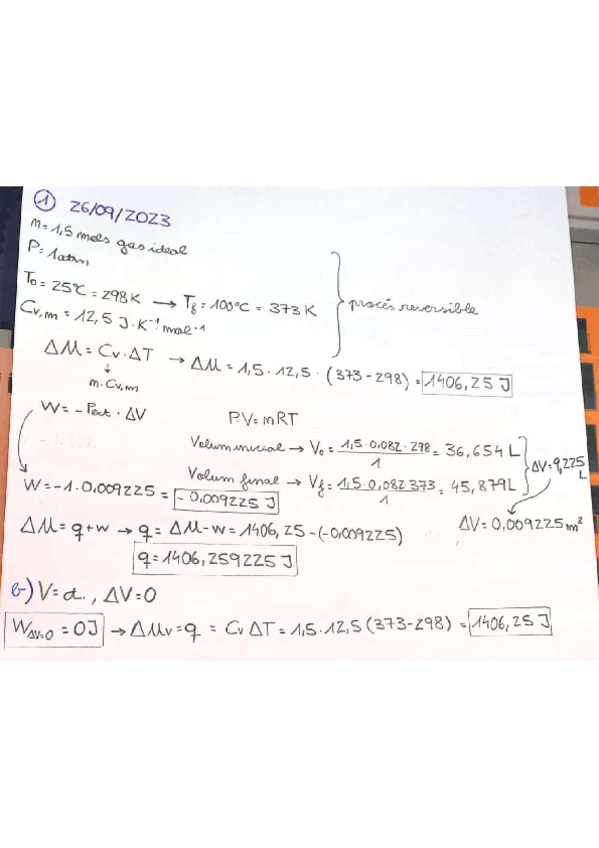 ① 26/09/2023
m = 1,5 mols gas ideal
P = 1atm
T₀ = 25°C = 298K → Tf = 100°C = 373K
Cv,m = 12,5 J·K⁻¹ mol⁻¹
procés reversible
ΔU = Cv · ΔT → ΔU = 1,5 · 12,5 · (373 - 298) = 1406,25 J
↓
m·Cv,m
W = - Pext · ΔV
P.V = mRT
Volum inicial → V₀ = 1,5·0,082·298 / 1 = 36,654 L
ΔV = 9,225 L
Volum final → Vf = 1,5·0,082 373 / 1 = 45,879 L
W = -1 · 0,009225 = - 0,009225 J
ΔV = 0,009225 m³
ΔU = q + w → q = ΔU - w = 1406,25 - (-0,009225)
q = 1406,259225 J
b-) V = ct., ΔV = 0
W ΔV=0 = 0J → ΔUv = q = Cv ΔT = 1,5·12,5 (373 - 298) = 1406,25 J